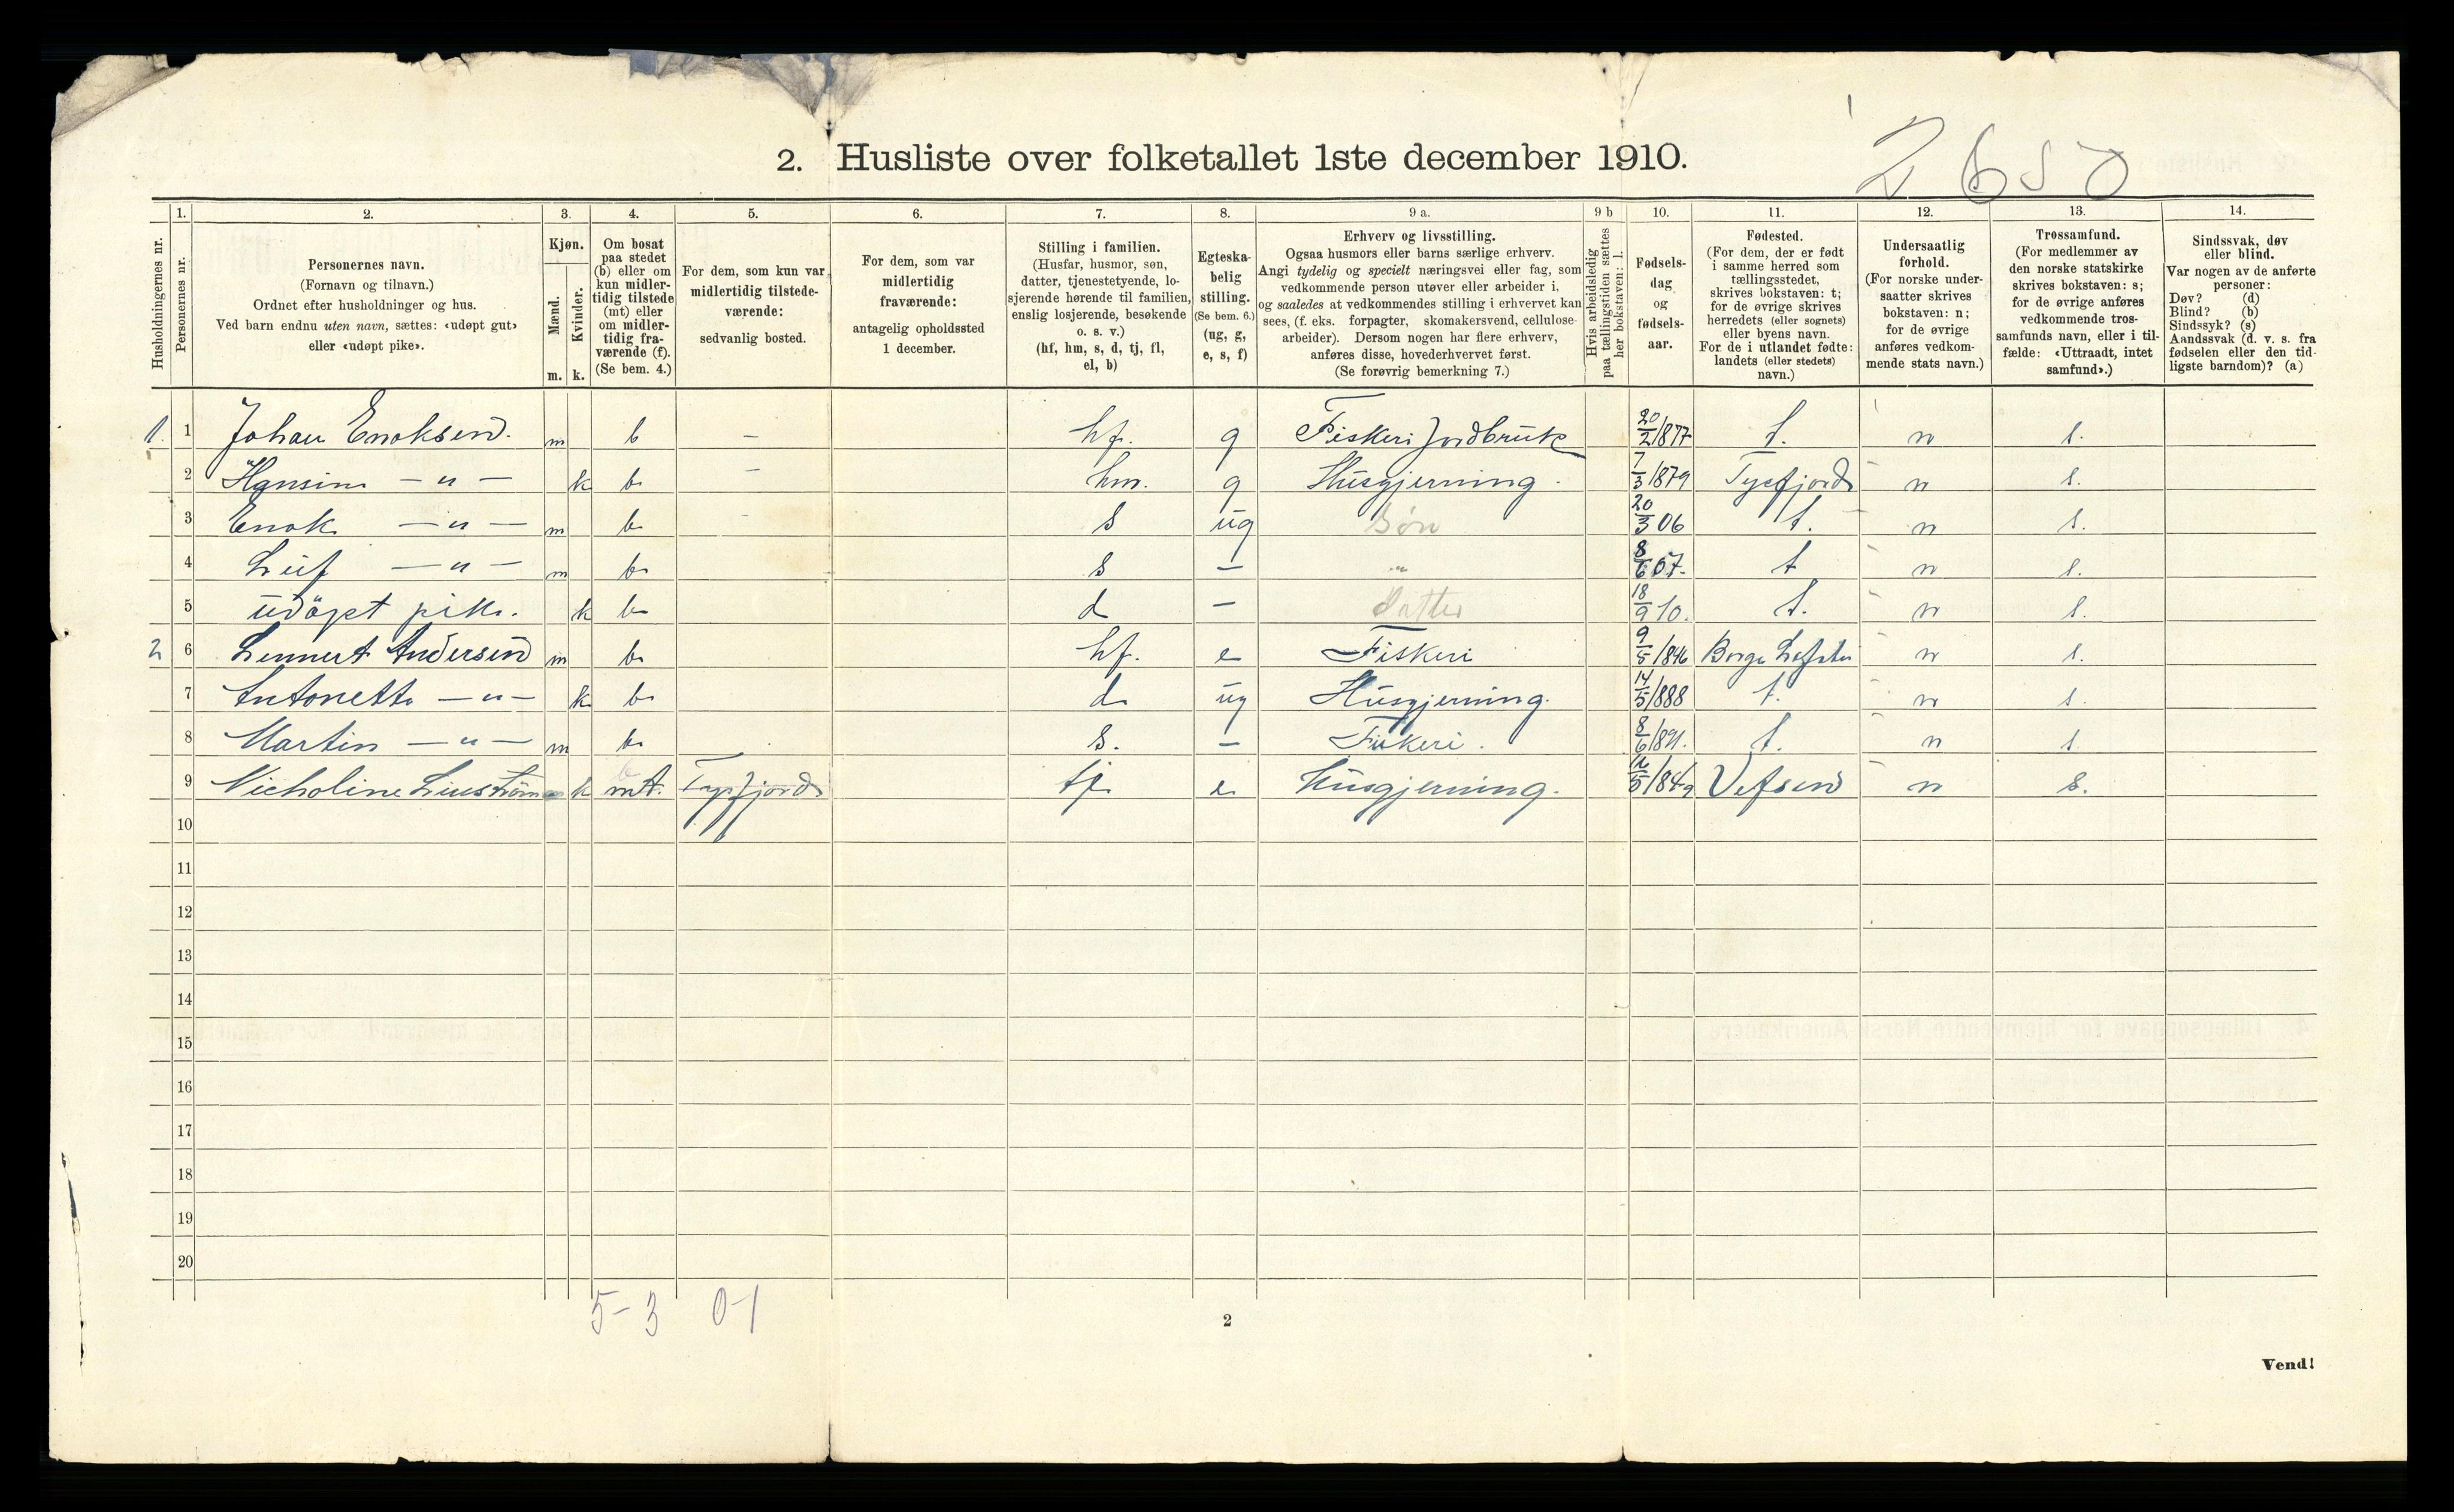 2. Husliste over folketallet 1ste december 1910.
2 6 5 0
Husholdningernes nr.
1. 2. 3. 4. 5. 6. 7. 8. 9 a. 9 b 10. 11. 12. 13. 14.
Personernes nr.
Personernes navn.
(Fornavn og tilnavn.)
Ordnet efter husholdninger og hus.
Ved barn endnu uten navn, sættes: «udøpt gut»
eller «udøpt pike».
Kjøn.
Mænd.
Kvinder.
m. k.
Om bosat
paa stedet
(b) eller om
kun midler-
tidig tilstede
(mt) eller
om midler-
tidig fra-
værende (f).
(Se bem. 4.)
For dem, som kun var
midlertidig tilstede-
værende:
sedvanlig bosted.
For dem, som var
midlertidig
fraværende:
antagelig opholdssted
1 december.
Stilling i familien.
(Husfar, husmor, søn,
datter, tjenestetyende, lo-
sjerende hørende til familien,
enslig losjerende, besøkende
o. s. v.)
(hf, hm, s, d, tj, fl,
el, b)
Egteska-
belig
stilling.
(Se bem. 6.)
(ug, g,
e, s, f)
Erhverv og livsstilling.
Ogsaa husmors eller barns særlige erhverv.
Angi tydelig og specielt næringsvei eller fag, som
vedkommende person utøver eller arbeider i,
og saaledes at vedkommendes stilling i erhvervet kan
sees, (f. eks. forpagter, skomakersvend, cellulose-
arbeider). Dersom nogen har flere erhverv,
anføres disse, hovederhvervet først.
(Se forøvrig bemerkning 7.)
Hvis arbeidsledig
paa tællingstiden sættes
her bokstaven: l.
Fødsels-
dag
og
fødsels-
aar.
Fødested.
(For dem, der er født
i samme herred som
tællingsstedet,
skrives bokstaven: t;
for de øvrige skrives
herredets (eller sognets)
eller byens navn.
For de i utlandet fødte:
landets (eller stedets)
navn.)
Undersaatlig
forhold.
(For norske under-
saatter skrives
bokstaven: n;
for de øvrige
anføres vedkom-
mende stats navn.)
Trossamfund.
(For medlemmer av
den norske statskirke
skrives bokstaven: s;
for de øvrige anføres
vedkommende tros-
samfunds navn, eller i til-
fælde: «Uttraadt, intet
samfund».)
Sindssvak, døv
eller blind.
Var nogen av de anførte
personer:
Døv? (d)
Blind? (b)
Sindssyk? (s)
Aandssvak (d. v. s. fra
fødselen eller den tid-
ligste barndom)? (a)
1. 1 Johan Enoksen. m b – hf. g Fiskeri Jordbruk 20/2/877 t. n s.
2 Hansine – " – k b – hm. g Husgjerning. 7/3/879 Tysfjord n s.
3 Enok – " – m b s ug Søn 20/3 06 t. n s.
4 Leif – " – m b s – " 8/6 07. t n s.
5 udöpt pike. k b d – Datter 18/9 10. t. n s.
2 6 Lennert Andersen m b hf. e Fiskeri 9/5/846 Borge Lofoten n s.
7 Antonette – " – k b d ug Husgjerning. 14/5/888 t. n s.
8 Martin – " – m b s. – Fiskeri. 8/6/891. t. n s
9 Nicholine k mt. Tysfjord tj e Husgjerning. /5/849 Vefsen n s.
10
11
12
13
14
15
16
17
18
19
20
5–3 0–1
2
Vend!